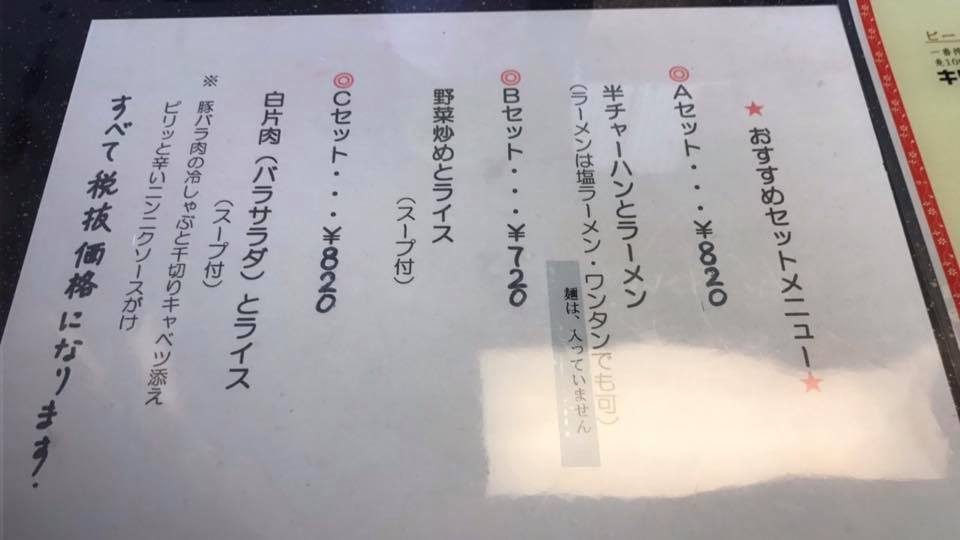 ★おすすめセットメニュー★
◎Aセット・・・￥820
半チャーハンとラーメン
(ラーメンは塩ラーメン・ワンタンでも可)
麺は、入っていません
◎Bセット・・・￥720
野菜炒めとライス
(スープ付)
◎Cセット・・・￥820
白片肉(バラサラダ)とライス
(スープ付)
※ 豚バラ肉の冷しゃぶと千切りキャベツ添え
ピリッと辛いニンニクソースがけ
すべて税抜価格になります.
ビー
一番搾